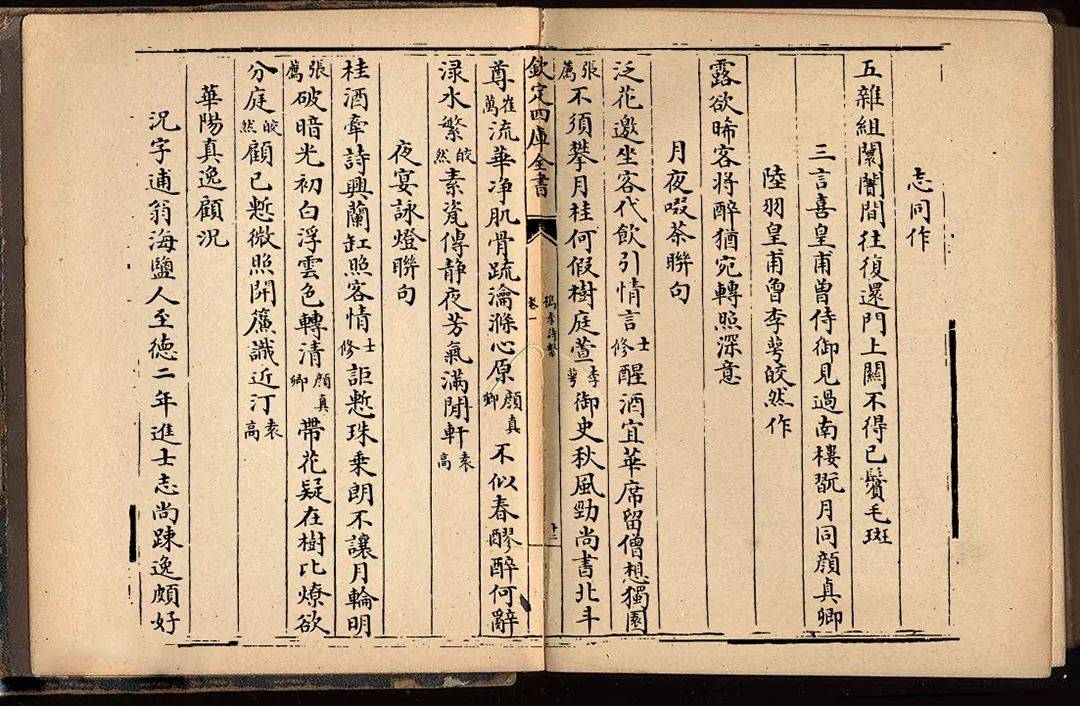 志同作
五雜組闤闠間往復還門上關不得已鬢毛斑
三言喜皇甫曽侍御見過南樓翫月同顔真卿
陸羽皇甫曽李萼皎然作
露欲晞客將醉猶宛轉照深意
月夜啜茶聯句
泛花邀坐客代飲引情言士修醒酒宜華席留僧想獨園
張薦不須攀月桂何假樹庭萱李萼御史秋風勁尚書北斗
欽定四庫全書
檇李詩繫
卷一
十二
尊崔萬流華净肌骨疏瀹滌心原顔真卿不似春醪醉何辭
渌水繁皎然素瓷傳靜夜芳氣滿閒軒袁高
夜宴詠燈聯句
桂酒牽詩興蘭缸照客情士修詎慙珠乗朗不讓月輪明
張薦破暗光初白浮雲色轉清顔真卿帶花疑在樹比燎欲
分庭皎然顧已慙微照開簾識近汀袁高
華陽真逸顧况
况字逋翁海鹽人至德二年進士志尚踈逸頗好